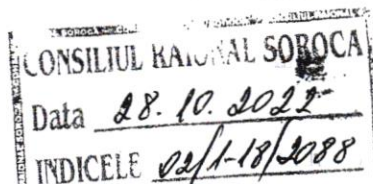 CONSILIUL RAIONAL SOROCA
Data 28.10.2022
INDICELE 02/1-18/2088